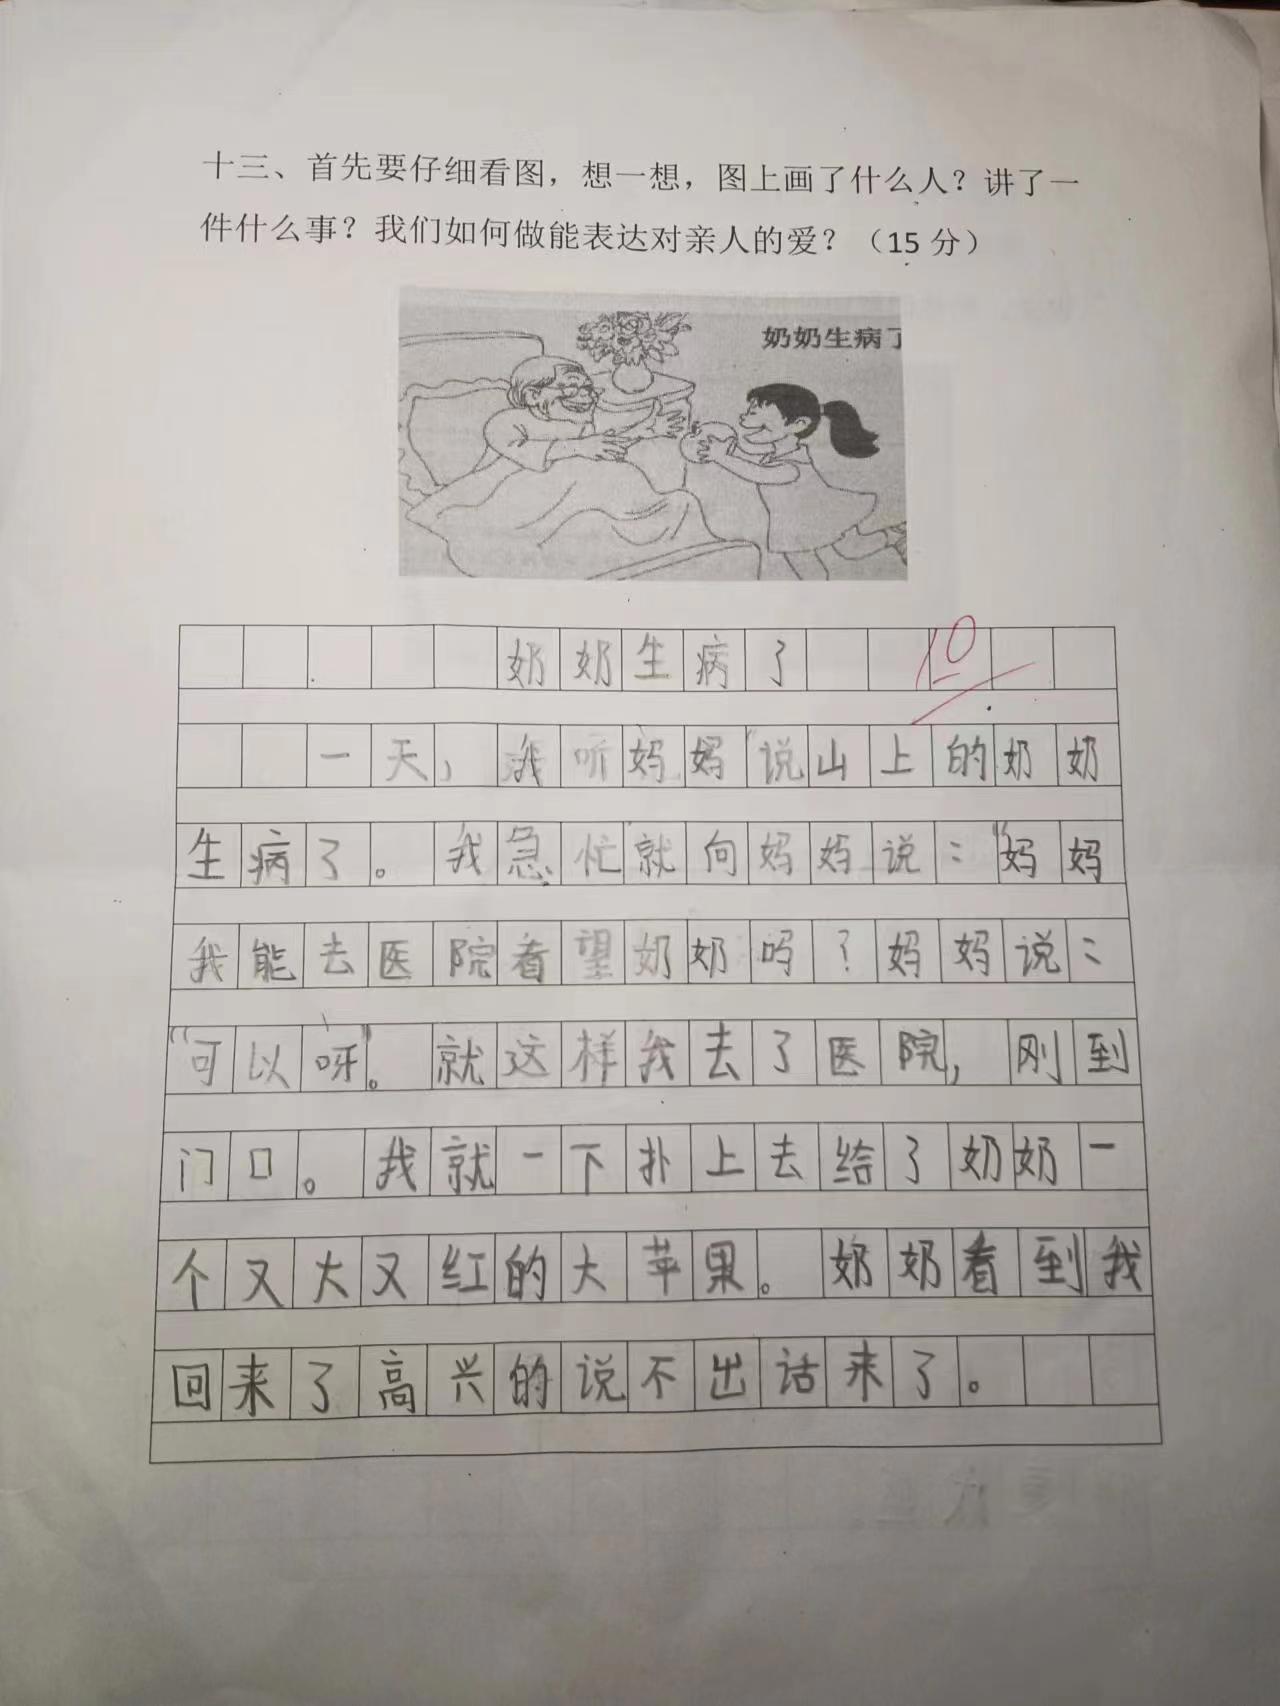 十三、首先要仔细看图，想一想，图上画了什么人？讲了一
件什么事？我们如何做能表达对亲人的爱？（15 分）
奶奶生病了
奶奶生病了
10
一天，我听妈妈说山上的奶奶
生病了。我急忙就向妈妈说：“妈妈
我能去医院看望奶奶吗？妈妈说：
“可以呀”。就这样我去了医院，刚到
门口。我就一下扑上去给了奶奶一
个又大又红的大苹果。奶奶看到我
回来了高兴的说不出话来了。